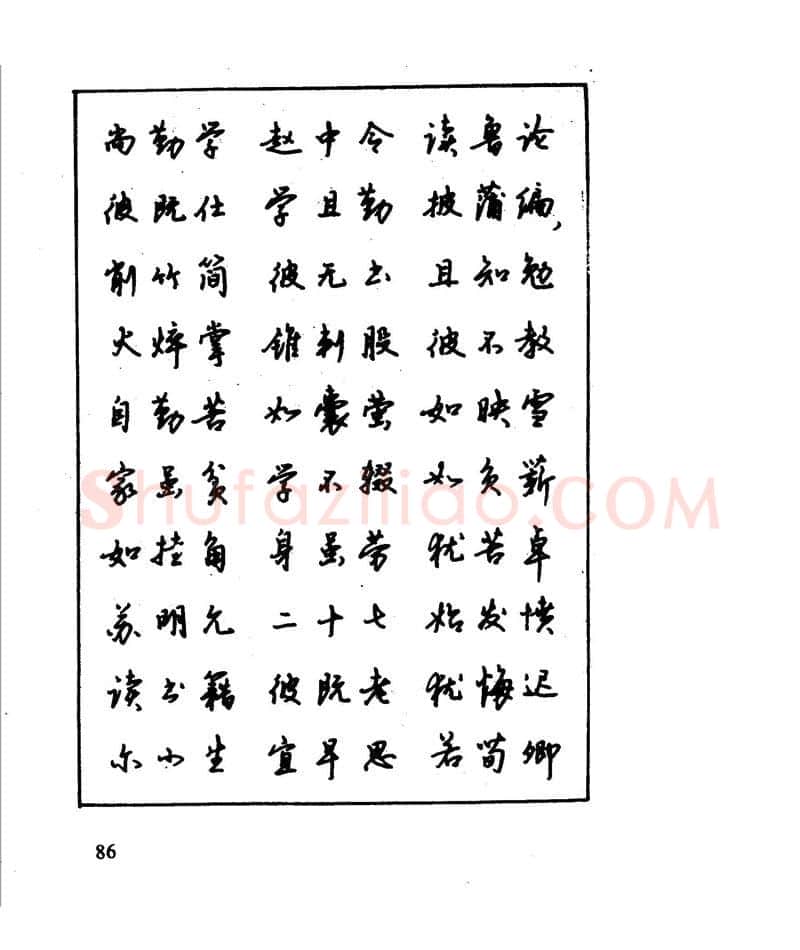 尚勤学 赵中令 读鲁论
彼既仕 学且勤 披蒲编,
削竹简 彼无书 且知勉
火焠掌 锥刺股 彼不教
自勤苦 如囊萤 如映雪
家虽贫 学不辍 如负薪
Shufaziliao.COM
如挂角 身虽劳 犹苦卓
苏明允 二十七 始发愤
读书籍 彼既老 犹悔迟
尔小生 宜早思 若荀卿
86